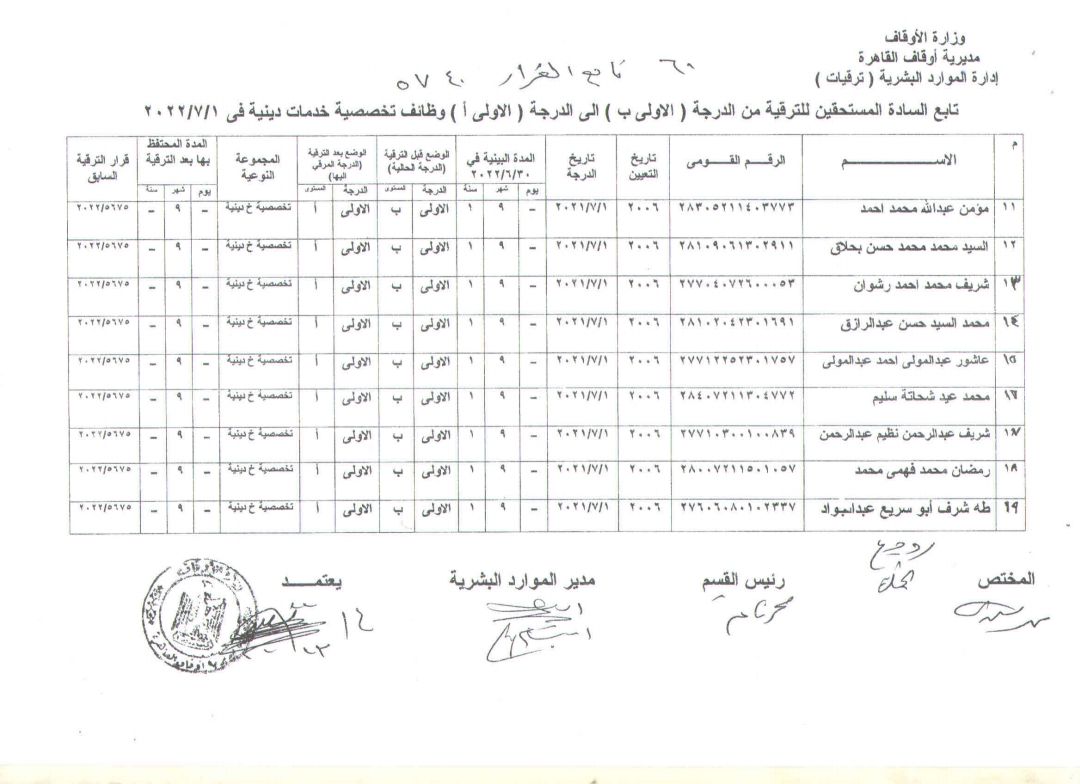 وزارة الأوقاف
مديرية أوقاف القاهرة
إدارة الموارد البشرية ( ترقيات )
تابع القرار ٥٧٤٠
تابع السادة المستحقين للترقية من الدرجة ( الاولى ب ) الى الدرجة ( الاولى أ ) وظائف تخصصية خدمات دينية فى ٢٠٢٢/٧/١
م الاســـــم الرقم القومى تاريخ التعيين تاريخ الدرجة المدة البينية في ٢٠٢٢/٦/٣٠ الوضع قبل الترقية (الدرجة الحالية) الوضع بعد الترقية (الدرجة المرقي اليها) المجموعة النوعية المدة المحتفظ بها بعد الترقية قرار الترقية السابق
يوم شهر سنة الدرجة المستوى الدرجة المستوى يوم شهر سنة
١١ مؤمن عبدالله محمد احمد ٢٨٣٠٥٢١١٤٠٣٧٧٣ ٢٠٠٦ ٢٠٢١/٧/١ – ٩ ١ الاولى ب الاولى أ تخصصية خ دينية – ٩ – ٢٠٢٢/٥٦٧٥
١٢ السيد محمد محمد حسن بحلاق ٢٨١٠٩٠٦١٣٠٢٩١١ ٢٠٠٦ ٢٠٢١/٧/١ – ٩ ١ الاولى ب الاولى أ تخصصية خ دينية – ٩ – ٢٠٢٢/٥٦٧٥
١٣ شريف محمد احمد رشوان ٢٧٧٠٤٠٧٢٦٠٠٠٥٣ ٢٠٠٦ ٢٠٢١/٧/١ – ٩ ١ الاولى ب الاولى أ تخصصية خ دينية – ٩ – ٢٠٢٢/٥٦٧٥
١٤ محمد السيد حسن عبدالرازق ٢٨١٠٢٠٤٢٣٠١٦٩١ ٢٠٠٦ ٢٠٢١/٧/١ – ٩ ١ الاولى ب الاولى أ تخصصية خ دينية – ٩ – ٢٠٢٢/٥٦٧٥
١٥ عاشور عبدالمولى احمد عبدالمولى ٢٧٧١٢٢٥٢٣٠١٧٥٧ ٢٠٠٦ ٢٠٢١/٧/١ – ٩ ١ الاولى ب الاولى أ تخصصية خ دينية – ٩ – ٢٠٢٢/٥٦٧٥
١٦ محمد عيد شحاتة سليم ٢٨٤٠٧٢١١٣٠٤٧٧٢ ٢٠٠٦ ٢٠٢١/٧/١ – ٩ ١ الاولى ب الاولى أ تخصصية خ دينية – ٩ – ٢٠٢٢/٥٦٧٥
١٧ شريف عبدالرحمن نظيم عبدالرحمن ٢٧٧١٠٣٠٠١٠٠٨٣٩ ٢٠٠٦ ٢٠٢١/٧/١ – ٩ ١ الاولى ب الاولى أ تخصصية خ دينية – ٩ – ٢٠٢٢/٥٦٧٥
١٨ رمضان محمد فهمى محمد ٢٨٠٠٧٢١١٥٠١٠٥٧ ٢٠٠٦ ٢٠٢١/٧/١ – ٩ ١ الاولى ب الاولى أ تخصصية خ دينية – ٩ – ٢٠٢٢/٥٦٧٥
١٩ طه شرف أبو سريع عبدالجواد ٢٧٦٠٦٠٨٠١٠٢٣٣٧ ٢٠٠٦ ٢٠٢١/٧/١ – ٩ ١ الاولى ب الاولى أ تخصصية خ دينية – ٩ – ٢٠٢٢/٥٦٧٥
روجع
المختص رئيس القسم مدير الموارد البشرية يعتمــد